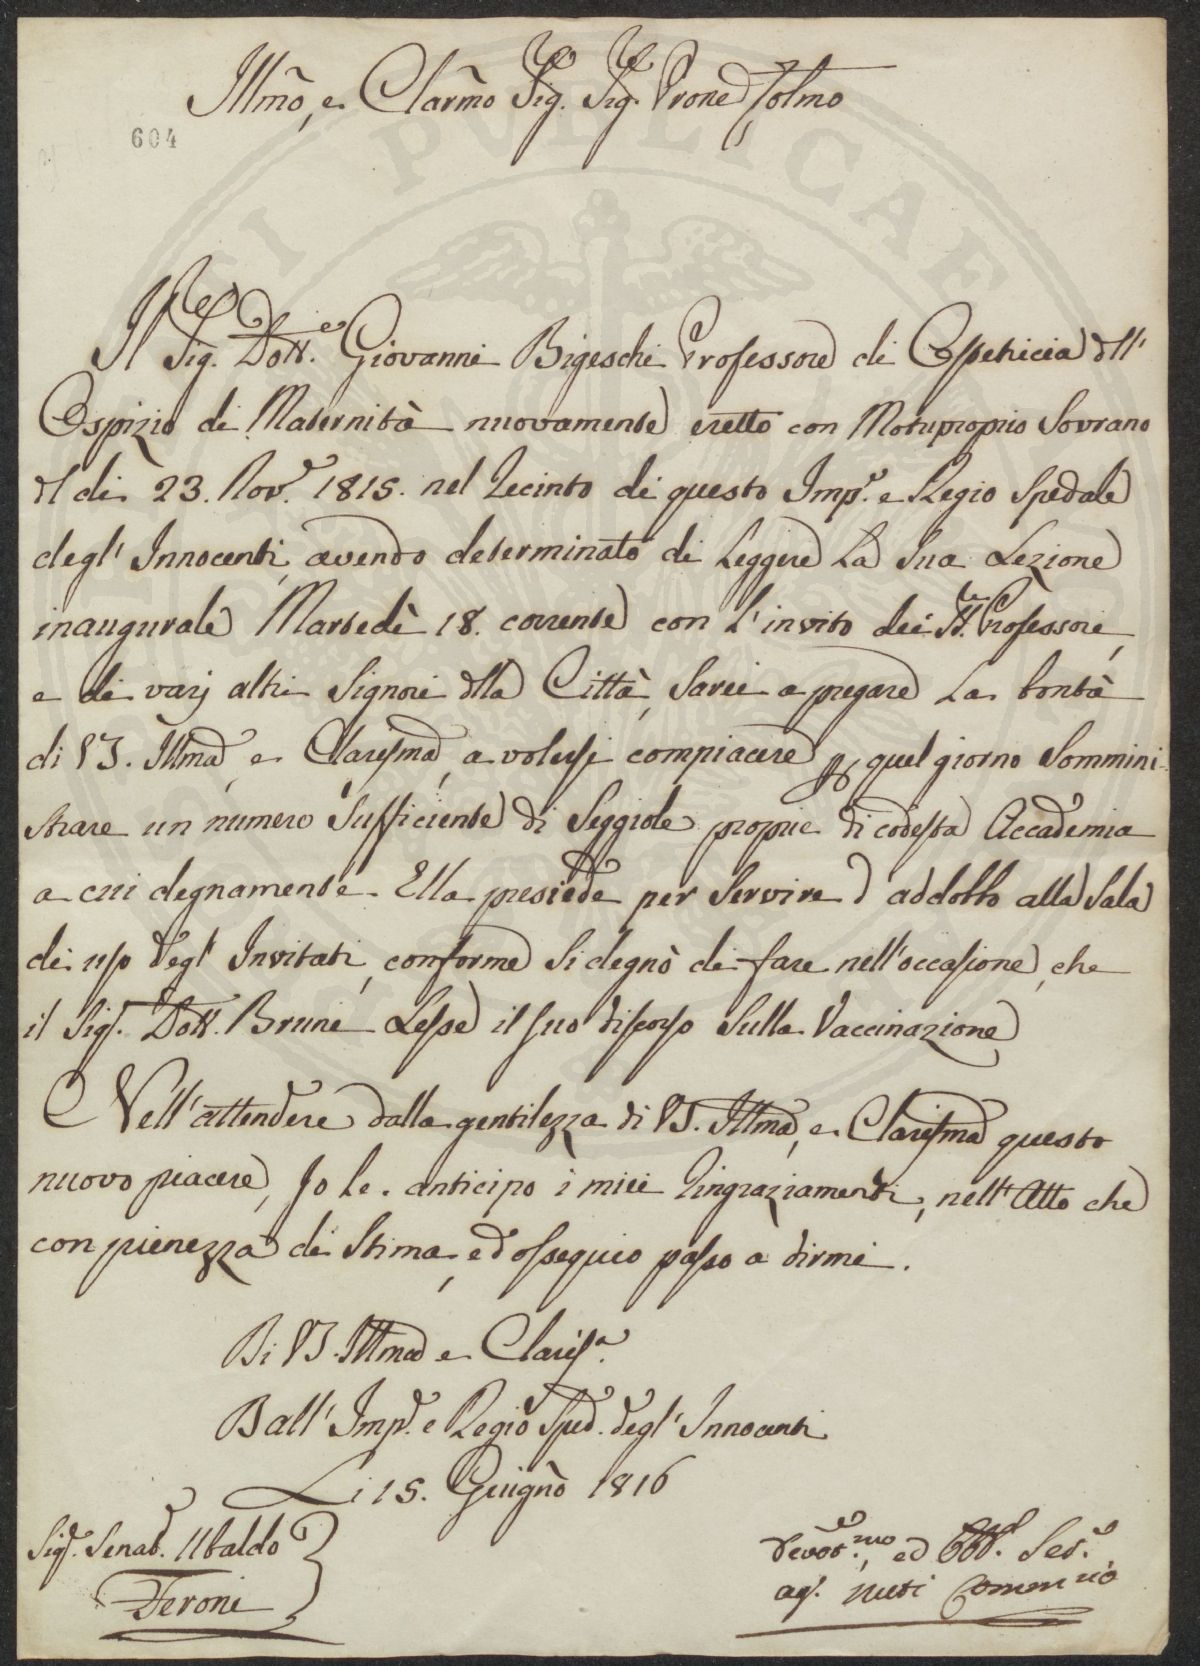 Illmõ, e Clarmõ Sig. Sig. Prone Colmo
604
Il Sig. Dott.e Giovanni Bigeschi Professore di Ostetricia dell'
Ospizio di Maternità nuovamente eretto con Motuproprio Sovrano
del dì 23. Nov.e 1815. nel Recinto di questo Imp.e e Regio Spedale
degl' Innocenti, avendo determinato di Leggere La Sua Lezione
inaugurale Martedì 18. corrente con L'invito dei SS.ri Professori,
e di varj altri Signori della Città, Sarei a pregare La bontà
di V.S. Illma, e Clarisma, a volersi compiacere per quel giorno Sommini-
strare un numero Sufficiente di Seggiole proprie di codesta Accademia
a cui degnamente Ella presiede per Servire d'addobbo alla Sala
di uso degl' Invitati, conforme Si degnò di fare nell'occasione, che
il Sig.e Dott. Bruni Lesse il suo discorso Sulla Vaccinazione
Nell'attendere dalla gentilezza di V.S. Illma, e Clarisma questo
nuovo piacere, Io Le anticipo i miei Ringraziamenti, nell'Atto che
con pienezza di Stima, ed ossequio passo a dirmi.
Di V.S. Illma e Claris.a
Dall' Imp.e e Regio Sped. degl' Innocenti
Li 15. Giugno 1816
Sig.e Senat.e Ubaldo
Feroni
Devot.mo, ed Obb. Ser.e
Nuti Commis.o
PUBLICAE